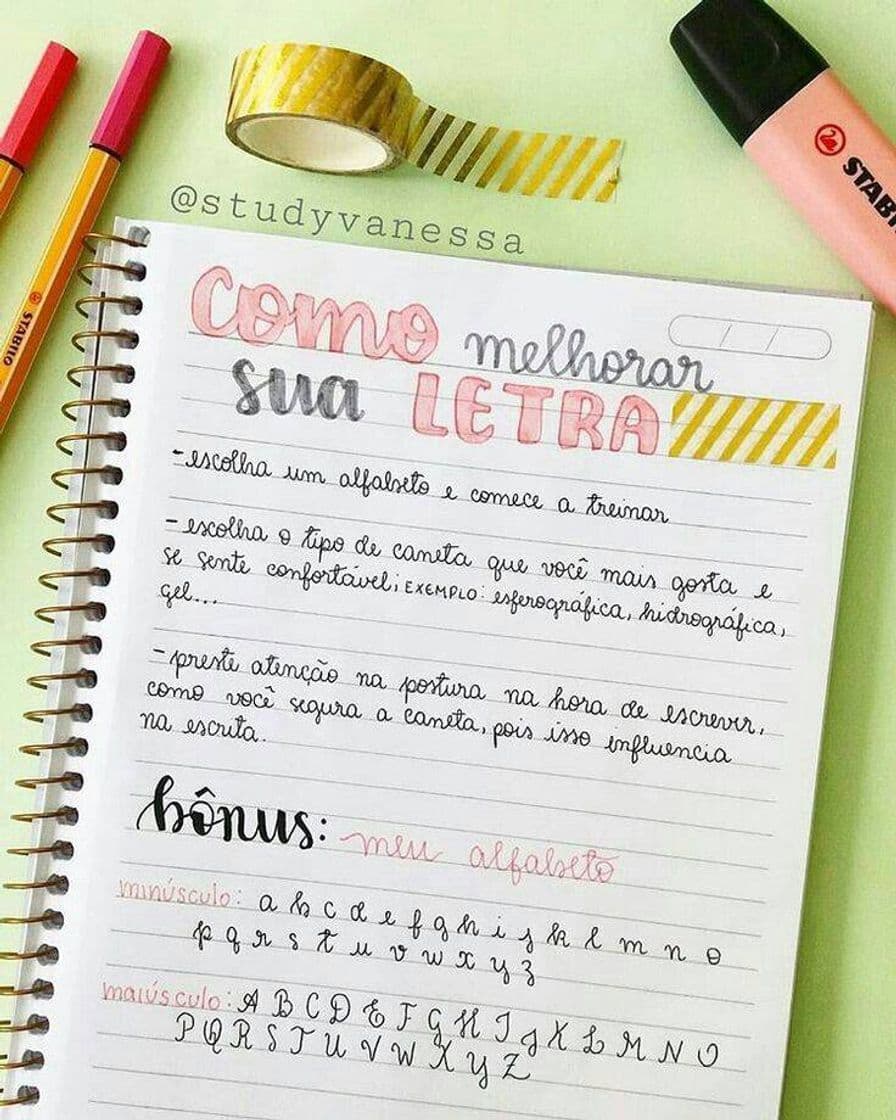 @studyvanessa
STABILO
STABI
COMO melhorar
/ /
sua LETRA
-escolha um alfabeto e comece a treinar
-escolha o tipo de caneta que você mais gosta e
se sente confortável; EXEMPLO: esferográfica, hidrográfica,
gel...
-preste atenção na postura na hora de escrever,
como você segura a caneta, pois isso influencia
na escrita.
bônus: meu alfabeto
minúsculo: a b c d e f g h i j k l m n o
p q r s t u v w x y z
maiúsculo: A B C D E F G H I J K L M N O
P Q R S T U V W X Y Z